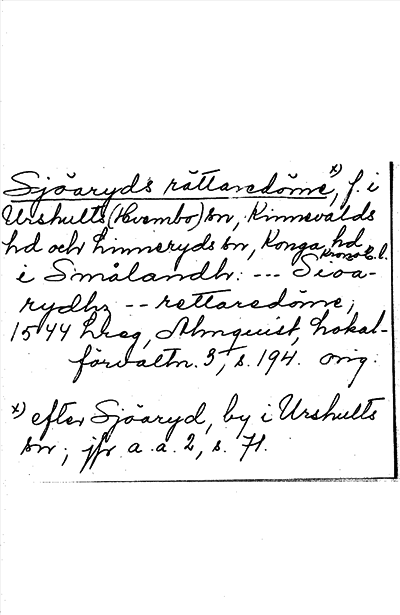 Sjöaryds rättaredöme x), f. i
Urshults (Hvembo) sn, Kinnevalds
hd och Linneryds sn, Konga hd
Kronob. l.
i Smålandh: --- Sioa-
rydhz -- rettaredöme;
1544 hreg, Almquist, Lokal-
förvaltn. 3, s. 194. orig.
x) efter Sjöaryd, by i Urshults
sn; jfr a. a. 2, s. 71.